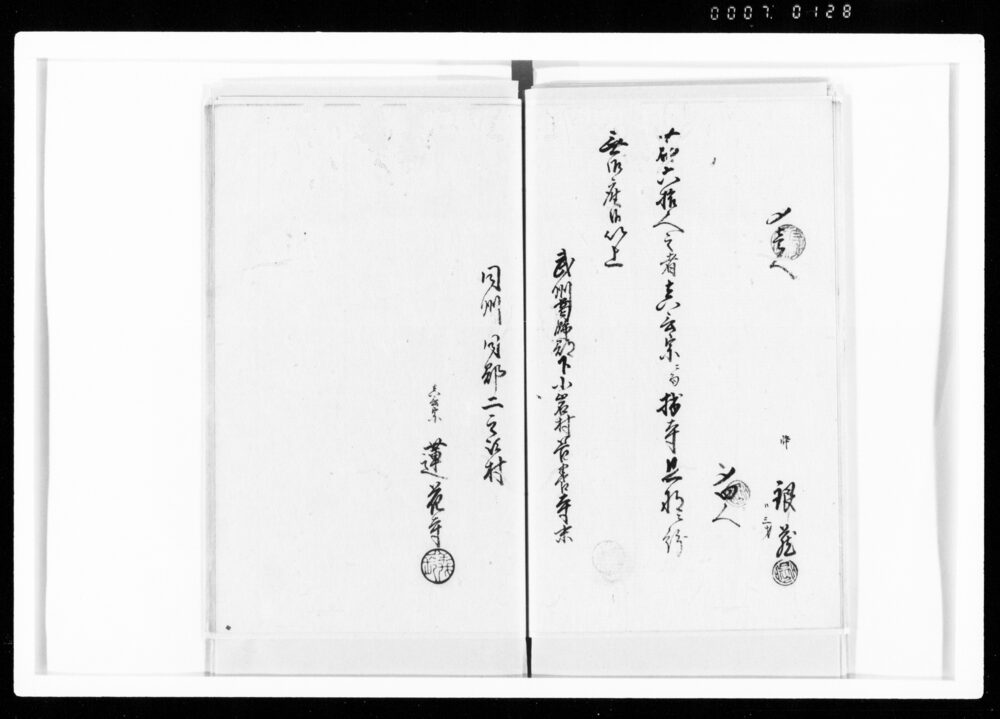 0007. 0128
〆壱人
銀蔵
〆四人
六拾人之者真言宗ニ而拙寺旦那ニ紛
無御座候以上
武州葛飾郡下小岩村善養寺末
同州同郡二之江村
真言宗
蓮花寺